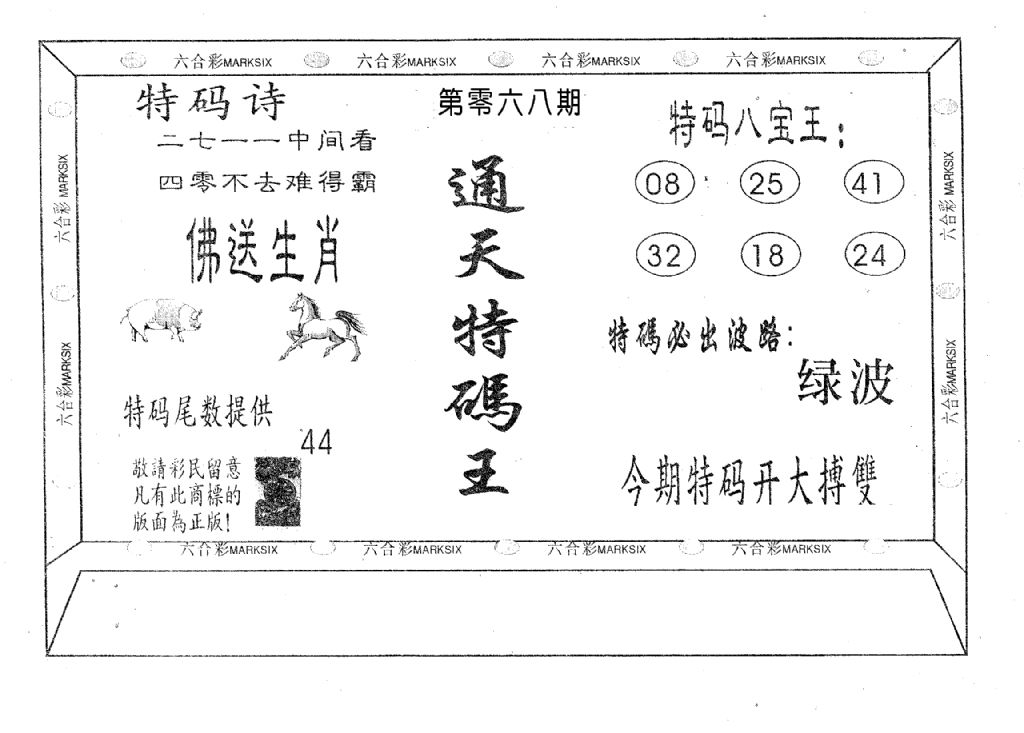 六合彩MARKSIX 六合彩MARKSIX 六合彩MARKSIX 六合彩MARKSIX
特码诗
二七一一中间看
四零不去难得霸
佛送生肖
特码尾数提供
44
敬請彩民留意
凡有此商標的
版面為正版!
第零六八期
通天特碼王
特码八宝王:
08 25 41
32 18 24
特碼必出波路:
绿波
今期特码开大搏雙
六合彩MARKSIX
六合彩MARKSIX
六合彩MARKSIX
六合彩MARKSIX
六合彩MARKSIX 六合彩MARKSIX 六合彩MARKSIX 六合彩MARKSIX